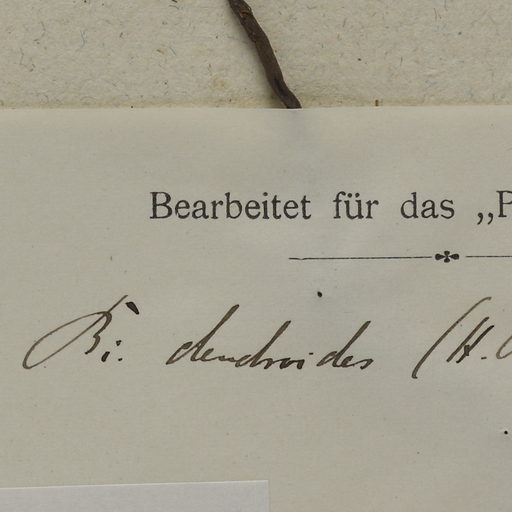 Bearbeitet für das „P
Bi. dendroides (H.